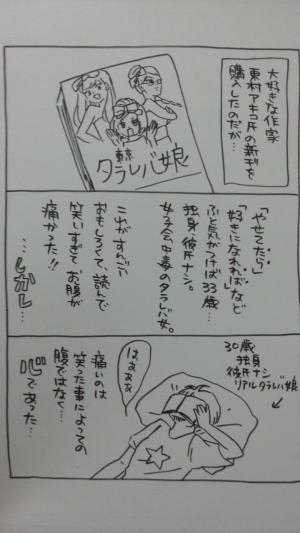 大好きな作家
東村アキコ氏の新刊を
購入したのだが…
東京
タラレバ娘
「やせてたら」
「好きになれれば」など
ふと気がつけば33歳…
独身、彼氏ナシ。
女子会中毒のタラレバ女。
これがすんごい
おもしろくて、読んで
笑いすぎて、お腹が
痛かった!!
…しかし…
30歳
独身
彼氏ナシ
リアルタラレバ娘
はぁぁぁ
痛いのは
笑った事によっての
腹ではなく…
心であった…